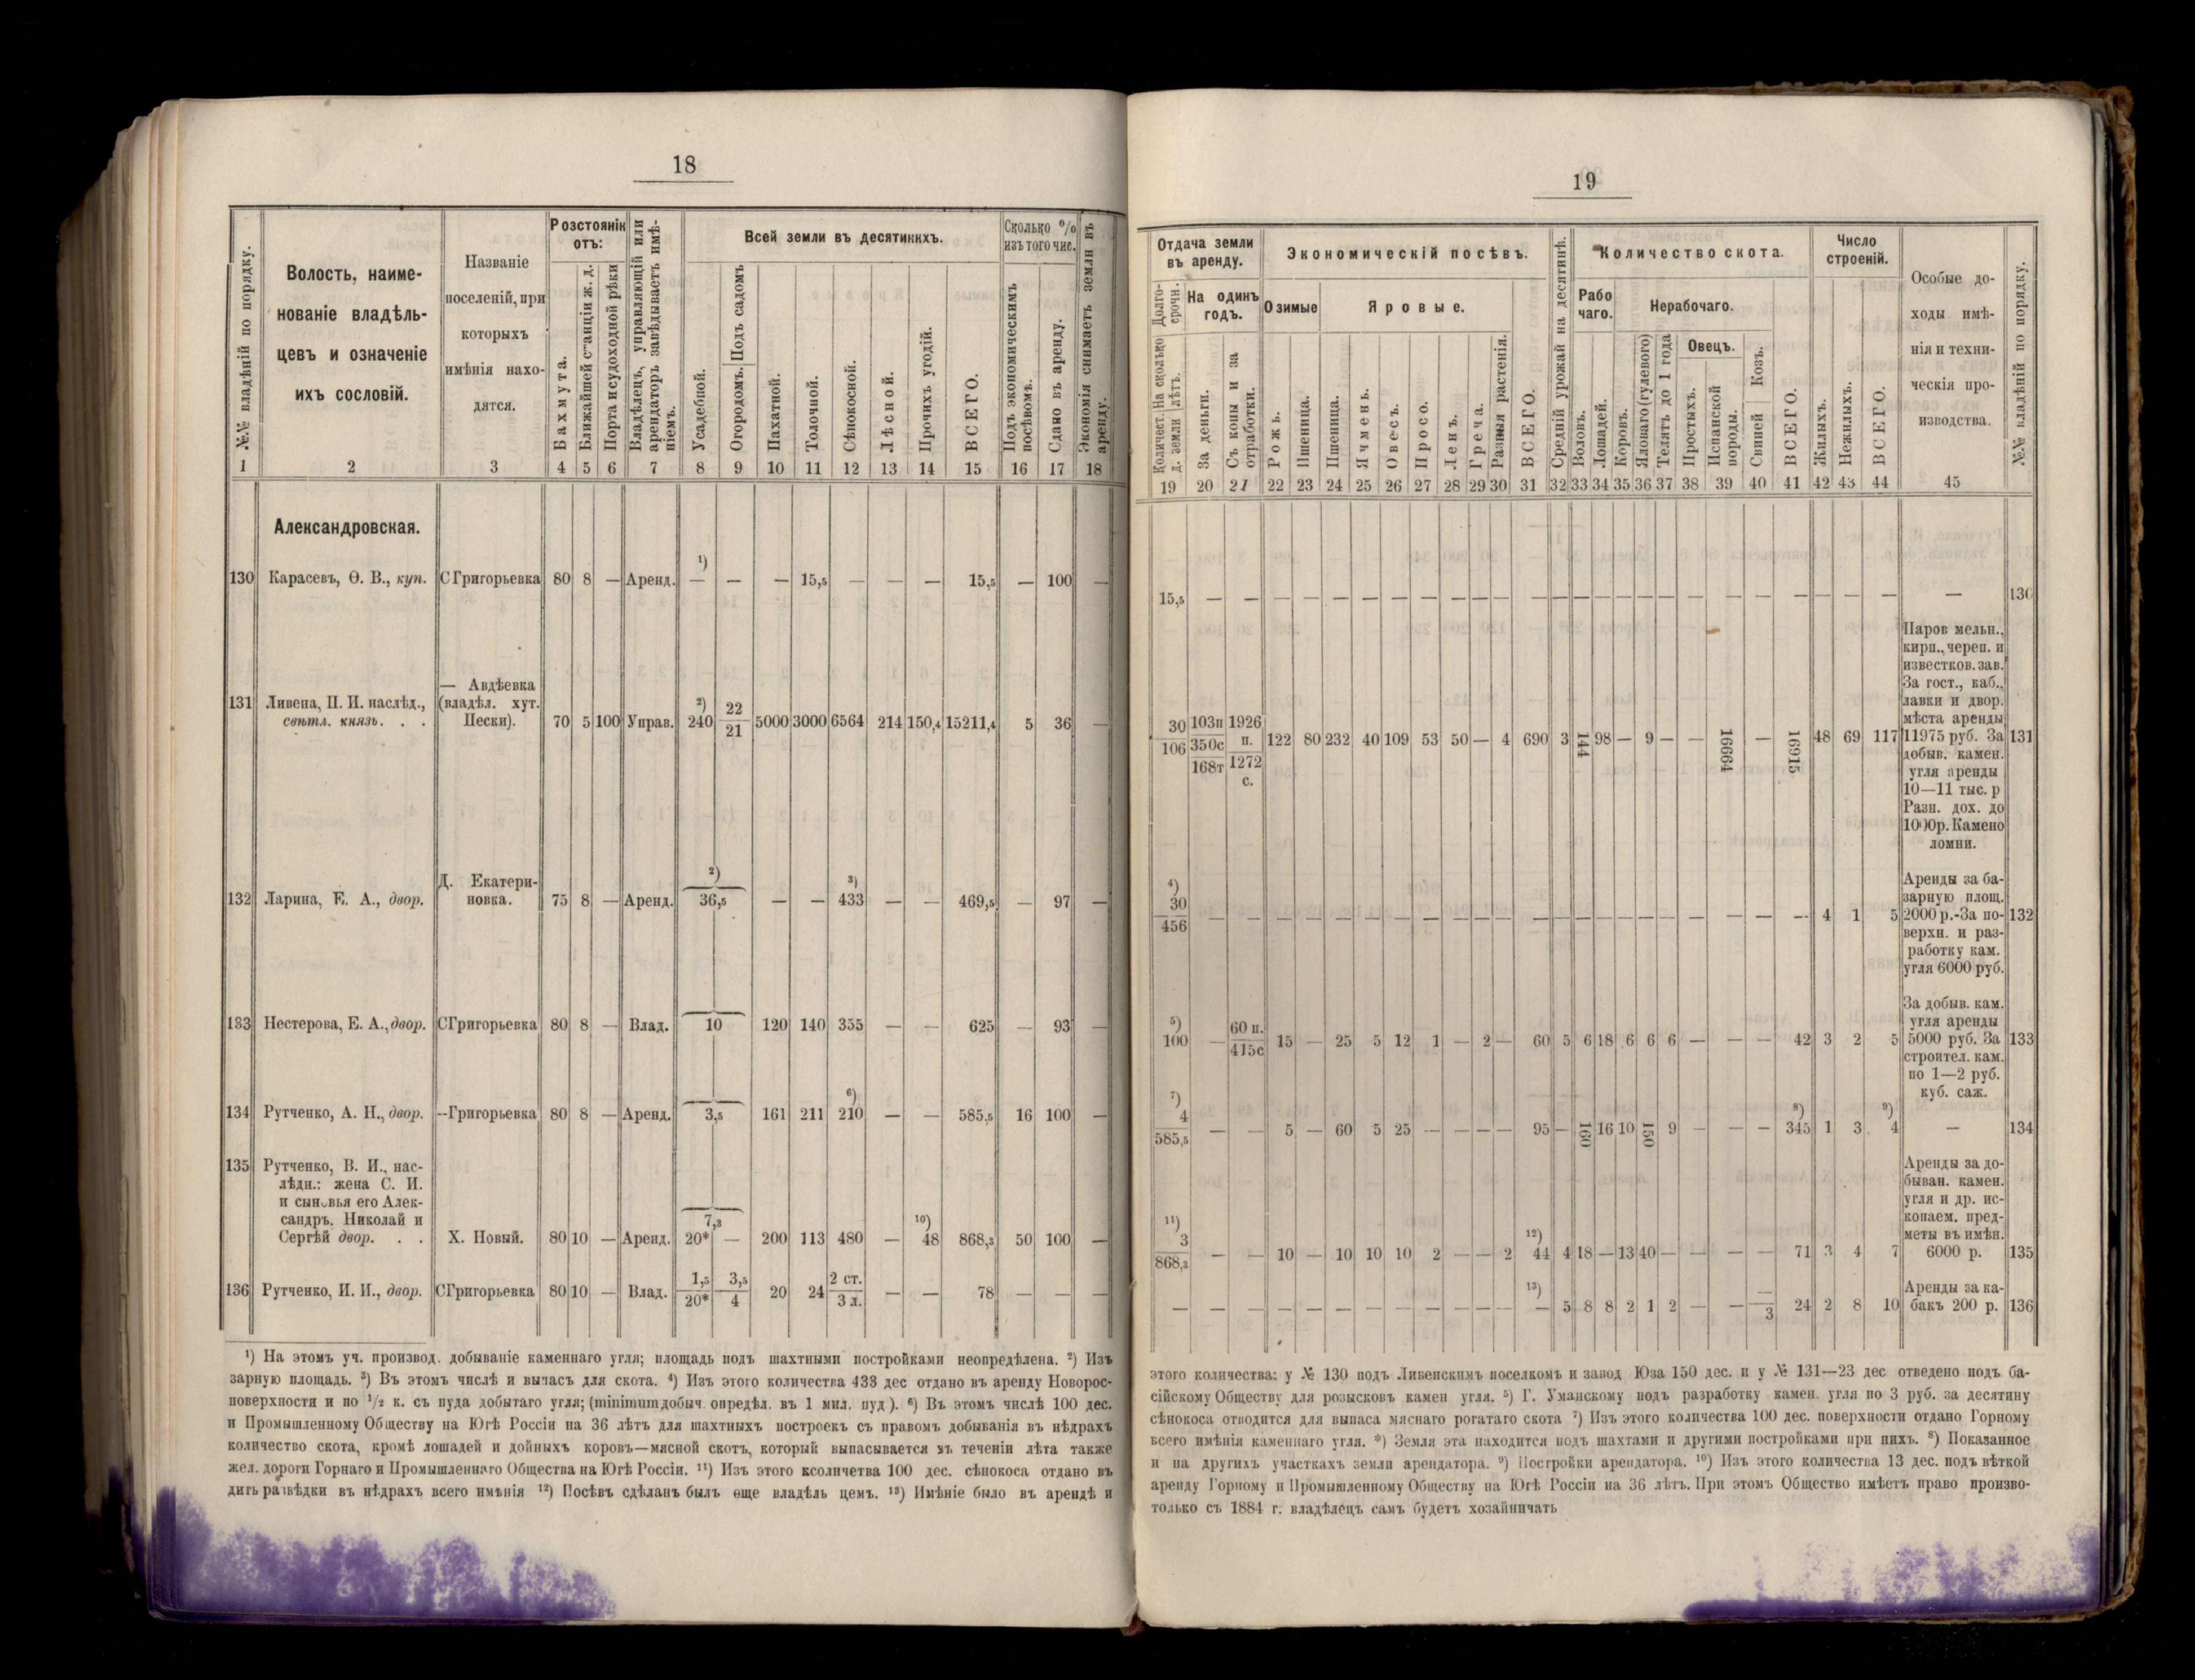 18
№№ владѣній по порядку.
Волость, наиме-
нованіе владѣль-
цевъ и означеніе
ихъ сословій.
Названіе
поселеній, при
которыхъ
имѣнія нахо-
дятся.
Розстояніи
отъ:
Бахмута.
Ближайшей станціи ж. д.
Порта и судоходной рѣки
Владѣлецъ, управляющій или
арендаторъ завѣдываетъ имѣ-
ніемъ.
Всей земли въ десятинихъ.
Усадебной.
Огородомъ. Подъ садомъ
Пахатной.
Толочной.
Сѣнокосной.
Лѣсной.
Прочихъ угодій.
ВСЕГО.
Сколько %
изъ того чис.
Подъ экономическимъ
посѣвомъ.
Сдано въ аренду.
Экономія снимаетъ земли въ
аренду.
1 2 3 4 5 6 7 8 9 10 11 12 13 14 15 16 17 18
Александровская.
130 Карасевъ, Ѳ. В., куп. С Григорьевка 80 8 — Аренд. ¹) — — — 15,5 — — — 15,5 — 100 —
— Авдѣевка
131 Ливена, П. И. наслѣд., (владѣл. хут.
свѣтл. князь. . . Пески). 70 5 100 Управ. ²) 240 22/21 5000 3000 6564 214 150,4 15211,4 5 36 —
Д. Екатери-
132 Ларина, Е. А., двор. новка. 75 8 — Аренд. ²) 36,5 — — ³) 433 — — 469,5 — 97 —
133 Нестерова, Е. А., двор. СГригорьевка 80 8 — Влад. 10 120 140 355 — — 625 — 93 —
134 Рутченко, А. Н., двор. --Григорьевка 80 8 — Аренд. 3,5 161 211 ⁶) 210 — — 585,5 16 100 —
135 Рутченко, В. И., нас-
лѣдн.: жена С. И.
и сыновья его Алек-
сандръ, Николай и
Сергѣй двор. . . Х. Новый. 80 10 — Аренд. 7,3 20* — 200 113 480 — ¹⁰) 48 868,3 50 100 —
136 Рутченко, И. И., двор. СГригорьевка 80 10 — Влад. 1,5/20* 3,5/4 20 24 2 ст./3 л. — — 78 — — —
¹) На этомъ уч. производ. добываніе каменнаго угля; площадь подъ шахтными постройками неопредѣлена. ²) Изъ
зарную площадь. ³) Въ этомъ числѣ и выпасъ для скота. ⁴) Изъ этого количества 433 дес отдано въ аренду Новорос-
поверхности и по ¹/₂ к. съ пуда добытаго угля; (minimum добыч. опредѣл. въ 1 мил. пуд ). ⁶) Въ этомъ числѣ 100 дес.
и Промышленному Обществу на Югѣ Россіи на 36 лѣтъ для шахтныхъ построекъ съ правомъ добыванія въ нѣдрахъ
количество скота, кромѣ лошадей и дойныхъ коровъ—мясной скотъ, который выпасывается въ теченіи лѣта также
жел. дороги Горнаго и Промышленнаго Общества на Югѣ Россіи. ¹¹) Изъ этого ксоличетва 100 дес. сѣнокоса отдано въ
дить развѣдки въ нѣдрахъ всего имѣнія ¹²) Посѣвъ сдѣланъ былъ еще владѣль цемъ. ¹³) Имѣніе было въ арендѣ и
19
Отдача земли
въ аренду.
Долго-
срочн.
Количест.
д. земли
На сколько
лѣтъ.
На одинъ
годъ.
За деньги.
Съ копы и за
отработки.
Экономическій посѣвъ.
Озимые
Рожь.
Пшеница.
Яровые.
Пшеница.
Ячмень.
Овесъ.
Просо.
Ленъ.
Греча.
Разныя растенія.
ВСЕГО.
Средній урожай на десятинѣ.
Количество скота.
Рабо
чаго.
Воловъ.
Лошадей.
Нерабочаго.
Коровъ.
Яловаго (гулеваго)
Телятъ до 1 года
Овецъ.
Простыхъ.
Испанской
породы.
Свиней Козъ.
ВСЕГО.
Число
строеній.
Жилыхъ.
Нежилыхъ.
ВСЕГО.
Особые до-
ходы имѣ-
нія и техни-
ческія про-
изводства.
№№ владѣній по порядку.
19 20 21 22 23 24 25 26 27 28 29 30 31 32 33 34 35 36 37 38 39 40 41 42 43 44 45
15,5 — — — — — — — — — — — — — — — — — — — — — — — — — — 130
Паров мельн.,
кирп., череп. и
известков. зав.
За гост., каб.,
лавки и двор.
мѣста аренды
30/106 103п 350с 168т 1926 п. 1272 с. 122 80 232 40 109 53 50 — 4 690 3 144 98 — 9 — — 16664 — 16915 48 69 117 11975 руб. За 131
добыв. камен.
угля аренды
10—11 тыс. р
Разн. дох. до
1000р. Камено
ломни.
Аренды за ба-
зарную площ.
⁴) 30/456 — — — — — — — — — — — — — — — — — — — — — — 4 1 5 2000 р.-За по- 132
верхн. и раз-
работку кам.
угля 6000 руб.
За добыв. кам.
угля аренды
⁵) 100 — 60 п./415с 15 — 25 5 12 1 — 2 — 60 5 6 18 6 6 6 — — — 42 3 2 5 5000 руб. За 133
строител. кам.
по 1—2 руб.
куб. саж.
⁷) 4/585,5 — — 5 — 60 5 25 — — — — 95 — 160 16 10 150 9 — — — ⁸) 345 1 3 ⁹) 4 — 134
Аренды за до-
быван. камен.
угля и др. ис-
копаем. пред-
меты въ имѣн.
¹¹) 3/868,3 — — 10 — 10 10 10 2 — — 2 ¹²) 44 4 18 — 13 40 — — — — 71 3 4 7 6000 р. 135
Аренды за ка-
— — — — — — — — — — — — ¹³) — 5 8 8 2 1 2 — — —/3 24 2 8 10 бакъ 200 р. 136
этого количества: у № 130 подъ Ливенскимъ поселкомъ и завод Юза 150 дес. и у № 131—23 дес отведено подъ ба-
сійскому Обществу для розысковъ камен угля. ⁵) Г. Уманскому подъ разработку камен. угля по 3 руб. за десятину
сѣнокоса отводится для выпаса мяснаго рогатаго скота ⁷) Изъ этого количества 100 дес. поверхности отдано Горному
всего имѣнія каменнаго угля. *) Земля эта находится подъ шахтами и другими постройками при нихъ. ⁸) Показанное
и на другихъ участкахъ земли арендатора. ⁹) Постройки арендатора. ¹⁰) Изъ этого количества 13 дес. подъ вѣткой
аренду Горному и Промышленному Обществу на Югѣ Россіи на 36 лѣтъ. При этомъ Общество имѣетъ право произво-
только съ 1884 г. владѣлецъ самъ будетъ хозайничать